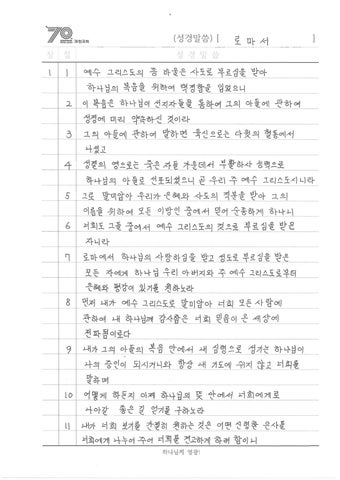 70 계정교회
(성경말씀) [ 로마서 ]
장 절 성경말씀
1 1 예수 그리스도의 종 바울은 사도로 부르심을 받아
하나님의 복음을 위하여 택정함을 입었으니
2 이 복음은 하나님이 선지자들을 통하여 그의 아들에 관하여
성경에 미리 약속하신 것이라
3 그의 아들에 관하여 말하면 육신으로는 다윗의 혈통에서
나셨고
4 성결의 영으로는 죽은 자들 가운데서 부활하사 능력으로
하나님의 아들로 선포되셨으니 곧 우리 주 예수 그리스도시니라
5 그로 말미암아 우리가 은혜와 사도의 직분을 받아 그의
이름을 위하여 모든 이방인 중에서 믿어 순종하게 하나니
6 너희도 그들 중에서 예수 그리스도의 것으로 부르심을 받은
자니라
7 로마에서 하나님의 사랑하심을 받고 성도로 부르심을 받은
모든 자에게 하나님 우리 아버지와 주 예수 그리스도로부터
은혜와 평강이 있기를 원하노라
8 먼저 내가 예수 그리스도로 말미암아 너희 모든 사람에
관하여 내 하나님께 감사함은 너희 믿음이 온 세상에
전파됨이로다
9 내가 그의 아들의 복음 안에서 내 심령으로 섬기는 하나님이
나의 증인이 되시거니와 항상 내 기도에 쉬지 않고 너희를
말하며
10 어떻게 하든지 이제 하나님의 뜻 안에서 너희에게로
나아갈 좋은 길 얻기를 구하노라
11 내가 너희 보기를 간절히 원하는 것은 어떤 신령한 은사를
너희에게 나누어 주어 너희를 견고하게 하려 함이니
하나님께 영광!